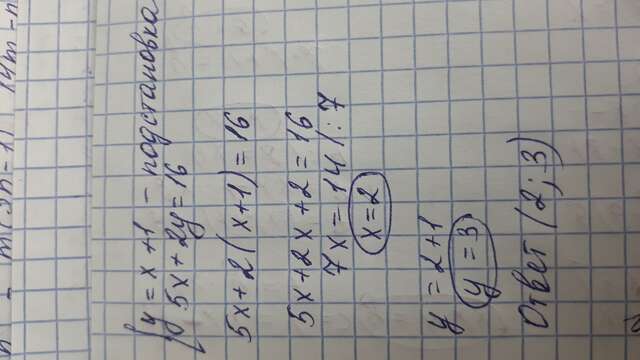 { y = x + 1 - подстановка
5x + 2y = 16
5x + 2(x+1) = 16
5x + 2x + 2 = 16
7x = 14 | : 7
x = 2
y = 2 + 1
y = 3
Ответ (2; 3)